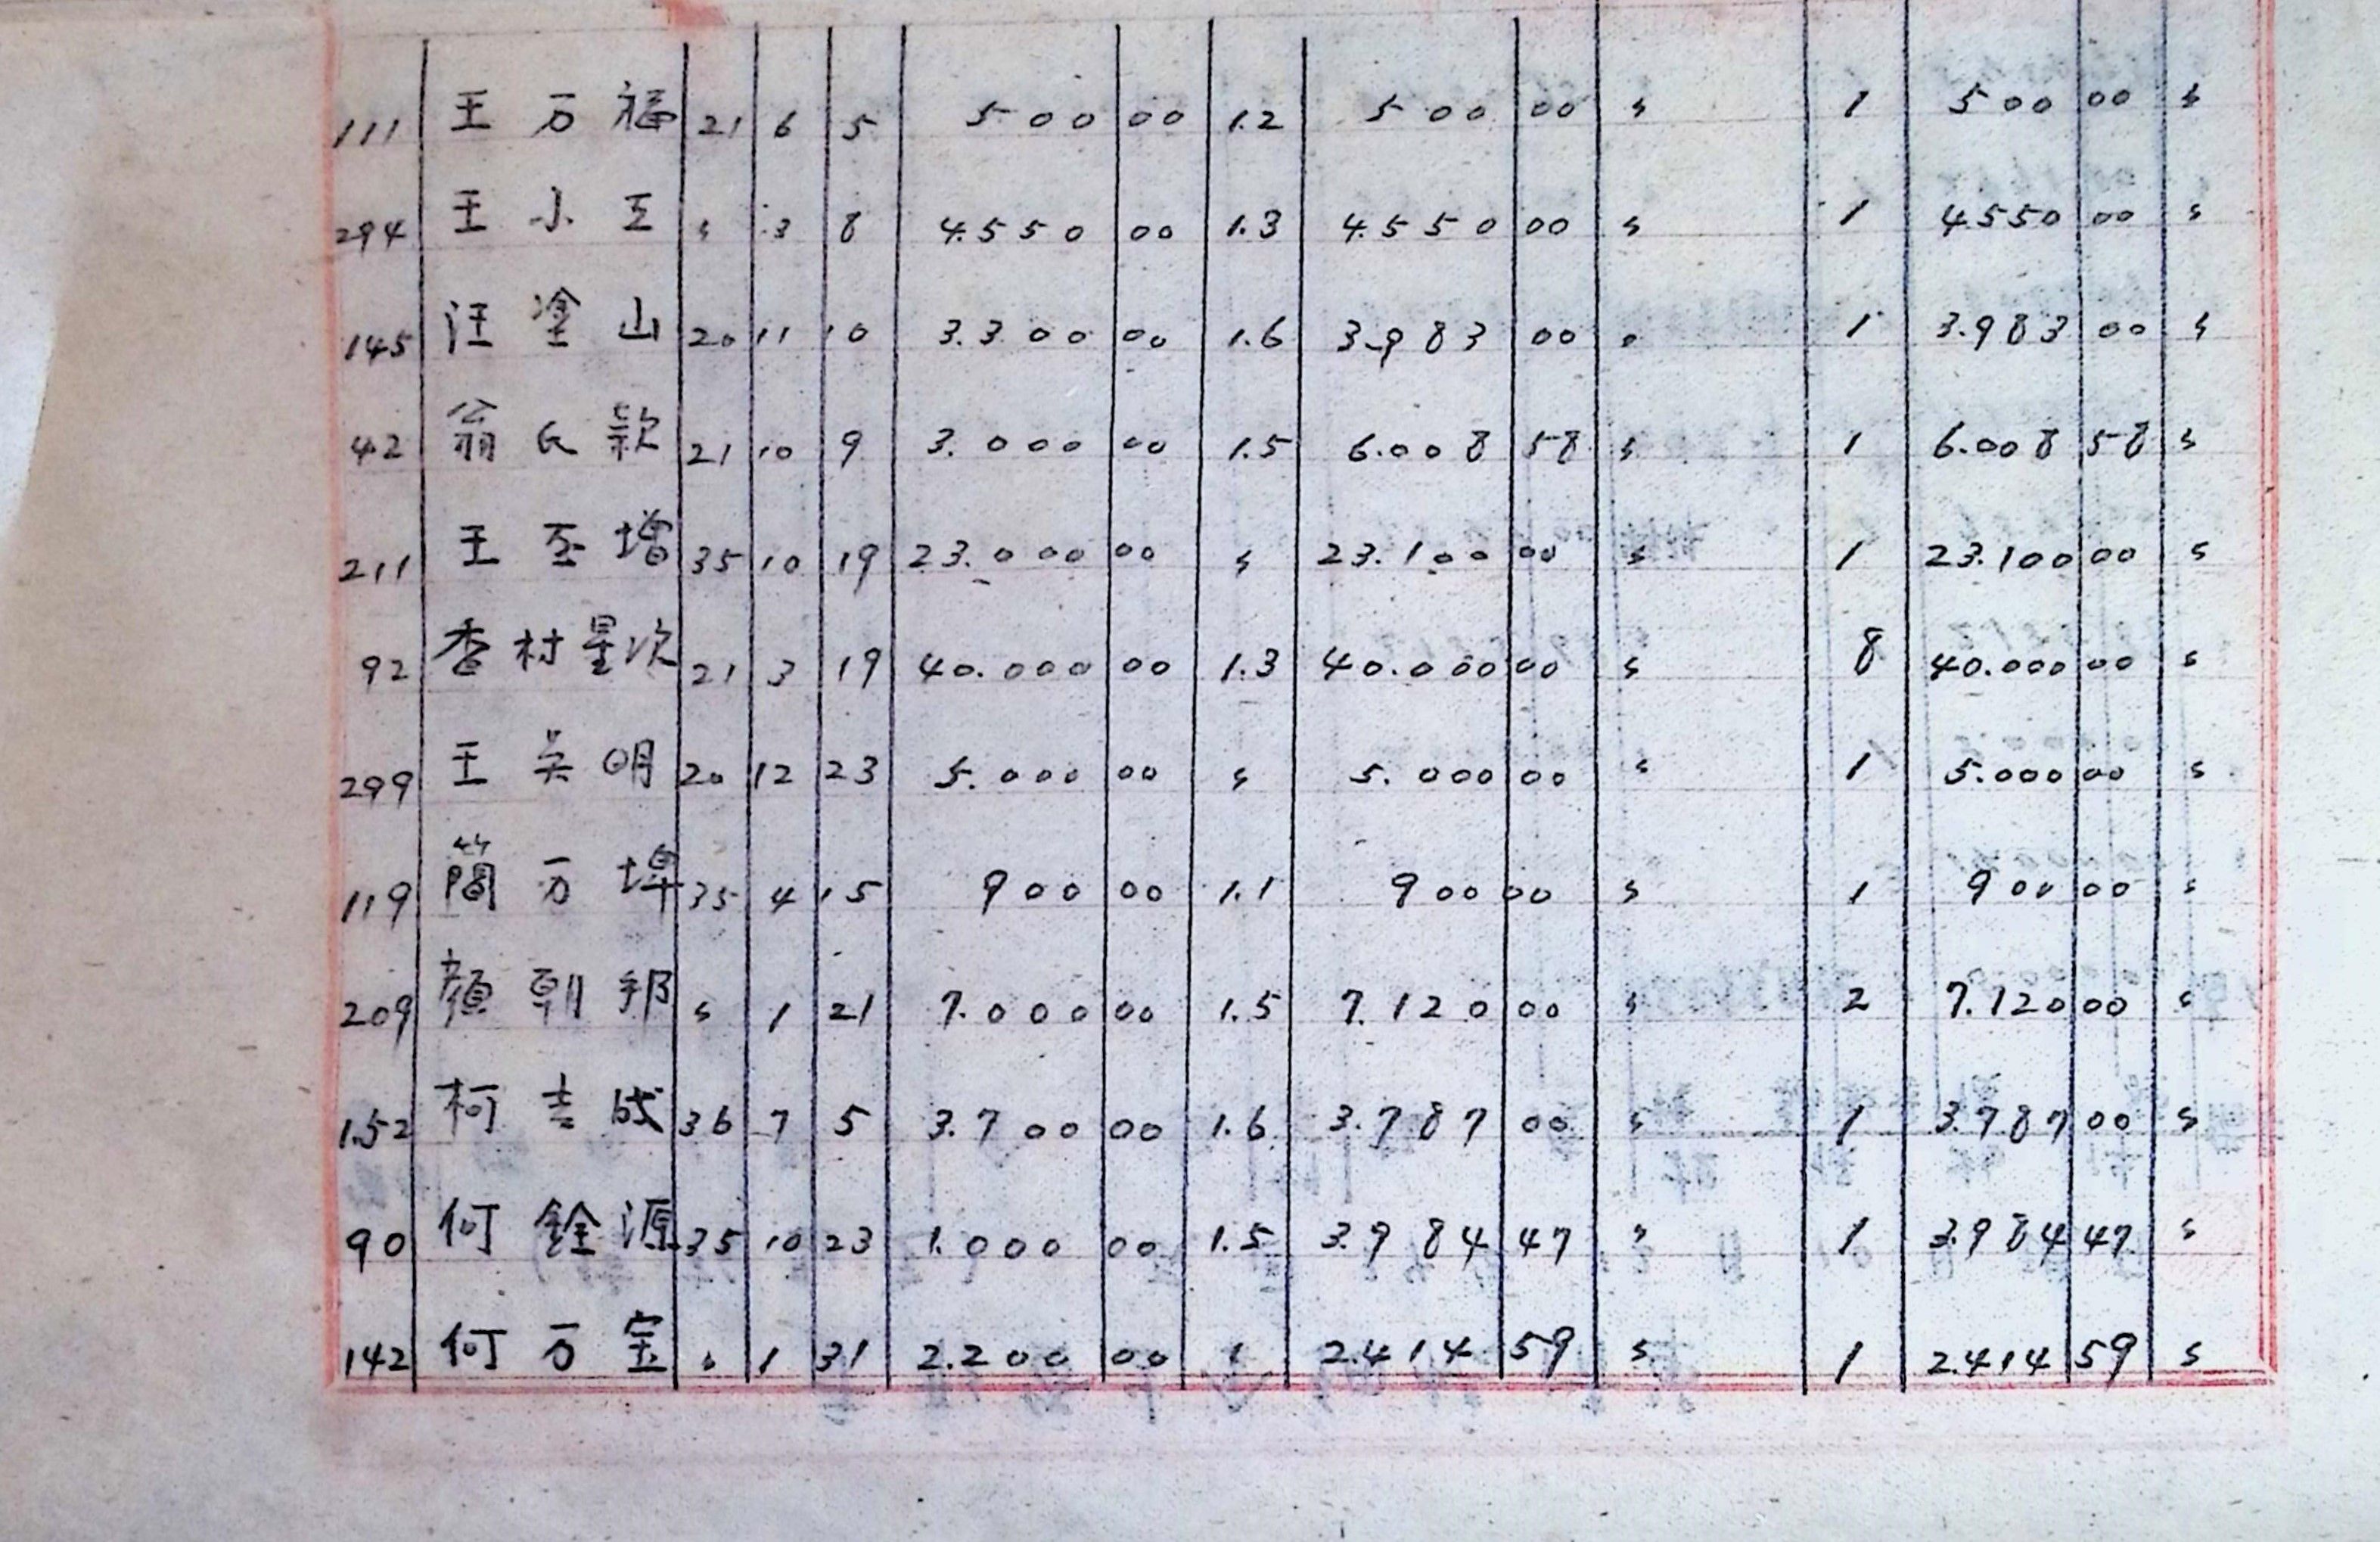 111 王万福 21 6 5 500 00 1.2 500 00 〃 1 500 00 〃
294 王小玉 〃 3 8 4.550 00 1.3 4.550 00 〃 1 4550 00 〃
145 汪塗山 20 11 10 3.300 00 1.6 3.983 00 〃 1 3.983 00 〃
42 翁氏款 21 10 9 3.000 00 1.5 6.008 58 〃 1 6.008 58 〃
211 王 增 35 10 19 23.000 00 〃 23.100 00 〃 1 23.100 00 〃
92 香村星次 21 3 19 40.000 00 1.3 40.000 00 〃 8 40.000 00 〃
299 王 明 20 12 23 5.000 00 〃 5.000 00 〃 1 5.000 00 〃
119 簡万埤 35 4 15 900 00 1.1 900 00 〃 1 900 00 〃
209 顏朝邦 〃 1 21 7.000 00 1.5 7.120 00 〃 2 7.120 00 〃
152 柯吉成 36 7 5 3.700 00 1.6 3.787 00 〃 1 3.787 00 〃
90 何銓源 35 10 23 1.000 00 1.5 3.984 47 〃 1 3.984 47 〃
142 何万宝 〃 1 31 2.200 00 1 2.414 59 〃 1 2.414 59 〃